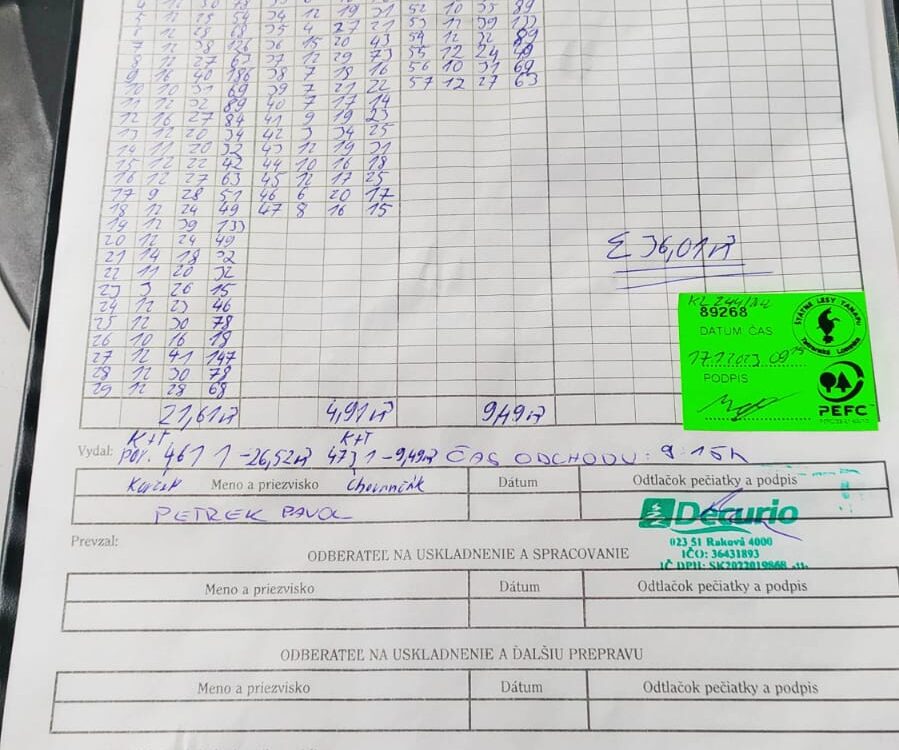 5 12 25 54 34 12 19 31 52 10 35 89
6 12 28 68 35 4 27 21 53 12 39 133
7 12 38 126 36 15 20 43 54 12 32 89
8 12 27 63 37 12 29 73 55 12 24 49
9 16 40 186 38 7 18 16 56 10 31 69
10 10 31 69 39 7 21 22 57 12 27 63
11 12 32 89 40 7 17 14
12 16 27 84 41 9 19 23
13 12 20 34 42 3 34 25
14 11 20 32 43 12 19 31
15 12 22 42 44 10 16 18
16 12 27 63 45 12 17 25
17 9 28 51 46 6 20 17
18 12 24 49 47 8 16 15
19 12 39 133
20 12 24 49
21 14 18 32
22 11 20 32
23 3 26 15
24 12 23 46
25 12 30 78
26 10 16 18
27 12 41 147
28 12 30 78
29 12 28 68
Σ 36,01 m³
KL 244/
89268
DATUM ČAS
17.1.2023 09 15
PODPIS
ŠTÁTNE LESY TANAPU
Tatranská Lomnica
PEFC
21,61 m³ 4,91 m³ 9,49 m³
K+T K+T
Vydal: por. 461 1 - 26,52 m³ 473 1 - 9,49 m³ ČAS ODCHODU: 9:15h
Meno a priezvisko Dátum Odtlačok pečiatky a podpis
PETREK PAVOL
Decurio
023 51 Raková 4000
IČO: 36431893
IČ DPH: SK2022019868
Prevzal:
ODBERATEĽ NA USKLADNENIE A SPRACOVANIE
Meno a priezvisko Dátum Odtlačok pečiatky a podpis
ODBERATEĽ NA USKLADNENIE A ĎALŠIU PREPRAVU
Meno a priezvisko Dátum Odtlačok pečiatky a podpis